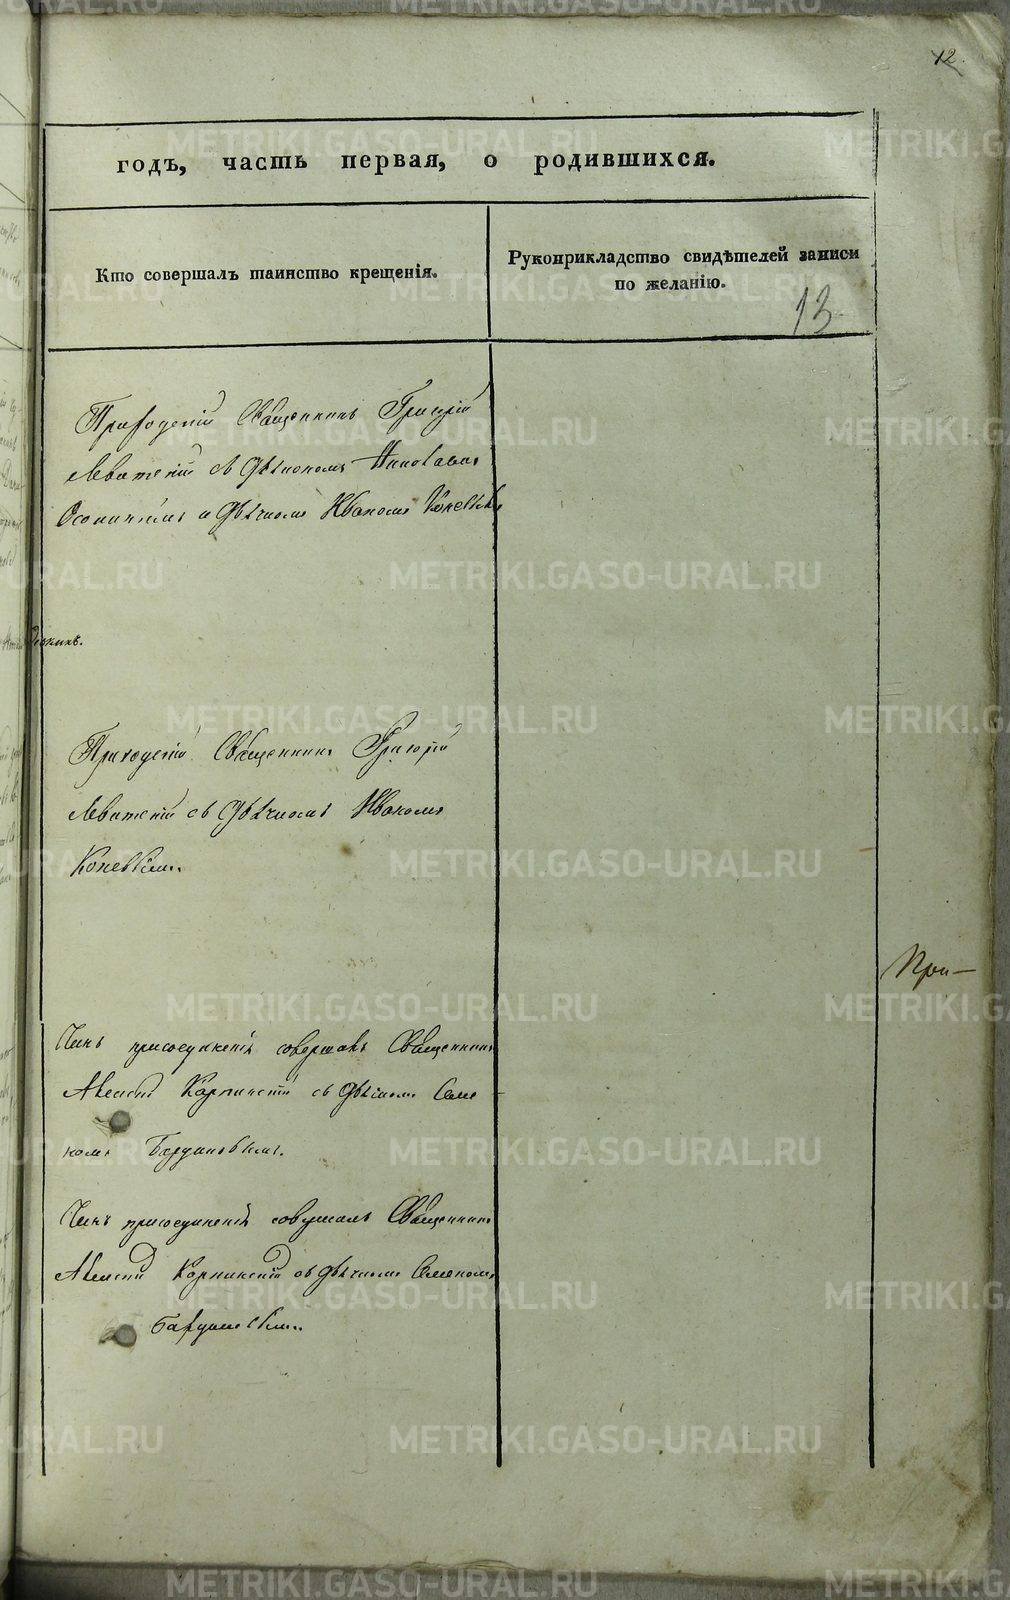 12.
годъ, часть первая, о родившихся.
Кто совершалъ таинство крещенія.
Рукоприкладство свидѣтелей записи
по желанію.
13
Приходскій Священникъ Григорій
Левитскій съ Дьякономъ
и Дьячкомъ Иваномъ Коневымъ
Приходскій Священникъ Григорій
Левитскій съ Дьячкомъ Иваномъ
Коневымъ.
При-
Чинъ присоединенія совершалъ Священникъ
Алексій Карпинскій съ Дьячкомъ Семе
номъ
Чинъ присоединенія совершалъ Священникъ
Алексій Карпинскій съ Дьячкомъ Семеномъ
METRIKI.GASO-URAL.RU